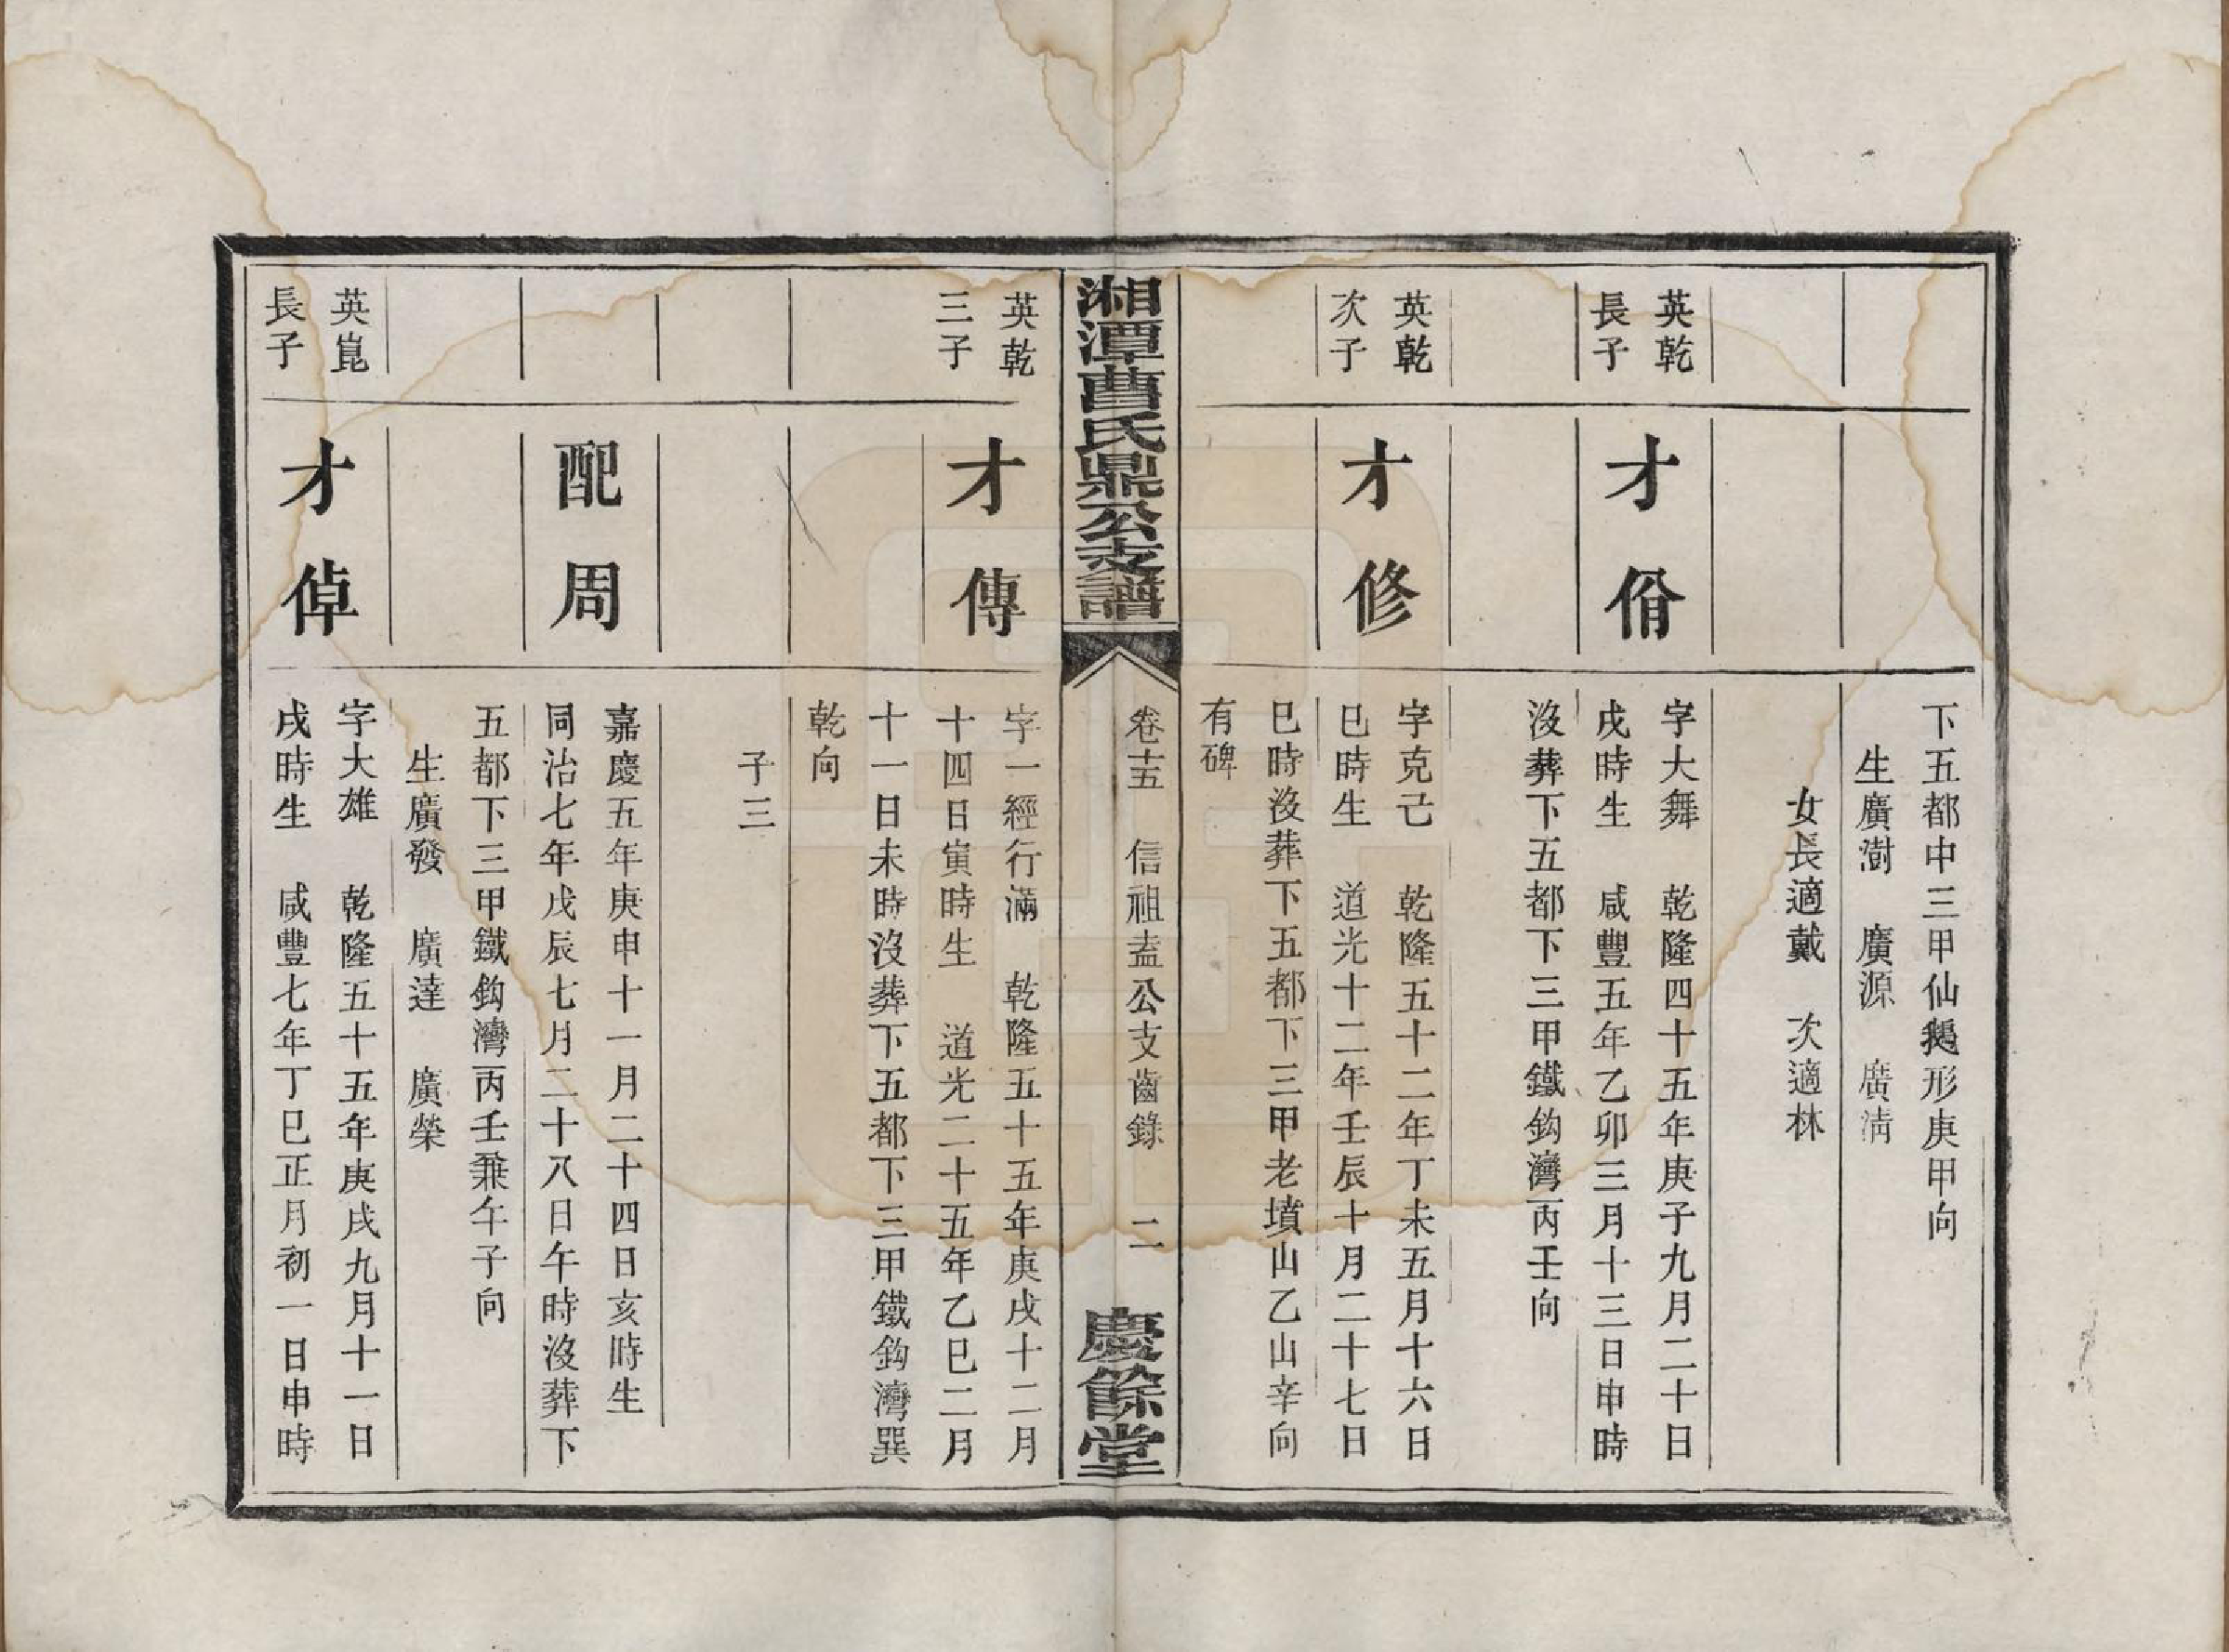 下五都中三甲仙鵝形庚甲向
生廣澍　廣源　廣淸
女長適戴　次適林
英乾
長子
才𠈉
字大舞　乾隆四十五年庚子九月二十日
戌時生　咸豐五年乙卯三月十三日申時
沒葬下五都下三甲鐵鈎灣丙壬向
英乾
次子
才修
字克己　乾隆五十二年丁未五月十六日
巳時生　道光十二年壬辰十月二十七日
巳時沒葬下五都下三甲老墳山乙山辛向
有碑
湘潭曹氏鼎公支譜
卷十五　信祖盍公支齒錄　二
慶餘堂
英乾
三子
才傳
字一經行滿　乾隆五十五年庚戌十二月
十四日寅時生　道光二十五年乙巳二月
十一日未時沒葬下五都下三甲鐵鈎灣巽
乾向
子三
配周
嘉慶五年庚申十一月二十四日亥時生
同治七年戊辰七月二十八日午時沒葬下
五都下三甲鐵鈎灣丙壬兼午子向
生廣發　廣達　廣榮
英崑
長子
才倬
字大雄　乾隆五十五年庚戌九月十一日
戌時生　咸豐七年丁巳正月初一日申時